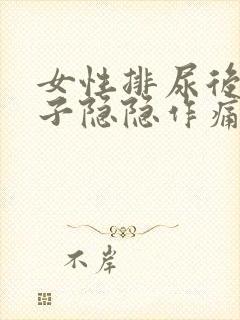 女性排尿後
子隐隐作痛
不岸